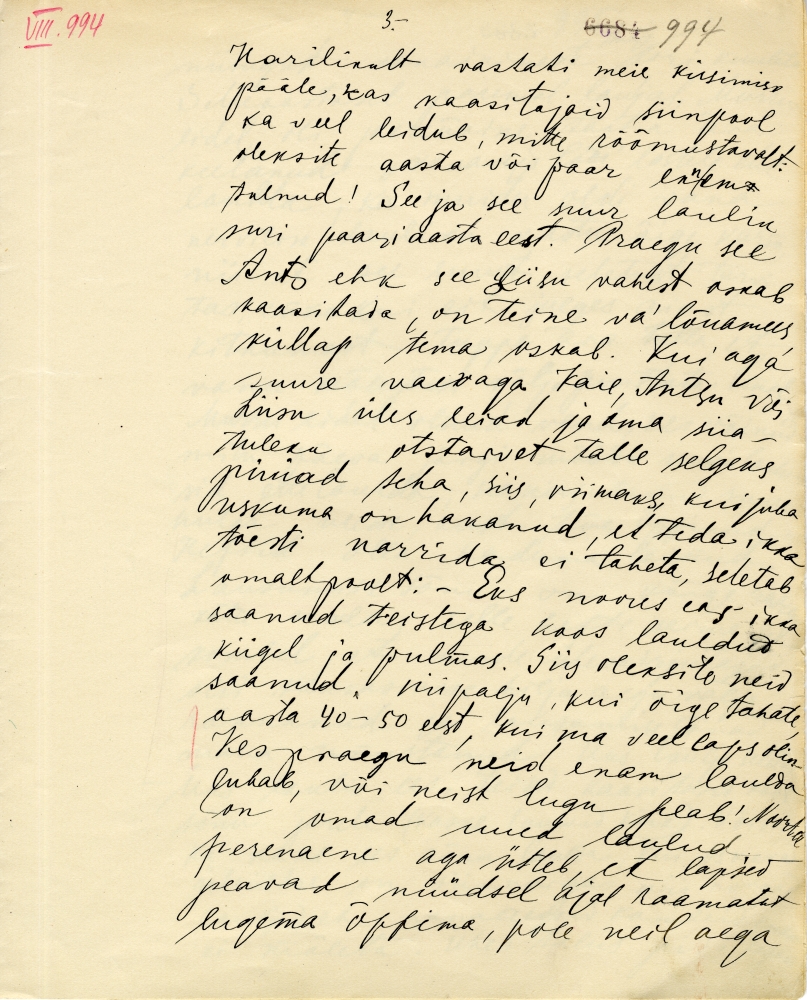 VIII. 994
3.-
6684 994
Harilikult vastati meie küsimise
pääle, kas kaasitajaid siinpool
ka veel leidub, mitte rõõmustavalt:
oleksite aasta või paar ennem
tulnud! See ja see suur laulik
suri paari aasta eest. Praegu see
Ants ehk see Liisu vahest oskab
kaasitada, on teine va' lõuamees,
küllap tema oskab. Kui aga
suure vaevaga Kaie, Antsu või
Liisu üles leiad ja oma siia-
tuleku otstarvet talle selgeks
püüad teha, siis, viimaks, kui juba
uskuma on hakanud, et teda ikka
tõesti narrida ei taheta, seletab
omalt poolt: - Eks noores eas ikka
saanud teistega koos lauldud
kiigel ja pulmas. Siis oleksite neid
saanud niipalju, kui õige tahate,
aasta 40-50 eest, kui ma veel laps olin.
Kes praegu neid enam laulda
luhab, või neist lugu peab! Noortel
on omad uued laulud.
perenaene aga ütleb, et lapsed
peavad nüüdsel ajal raamatut
lugema õppima, pole neil aega